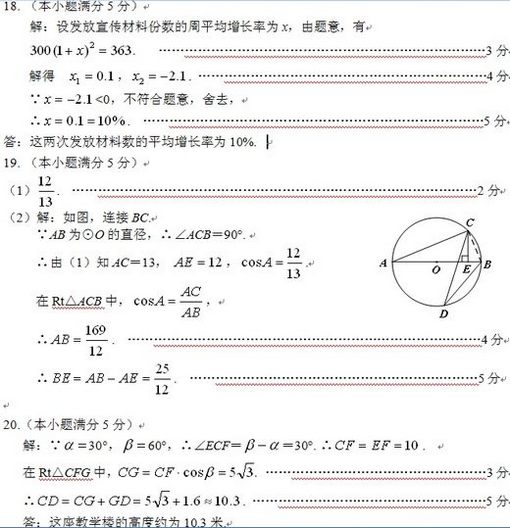 18.（本小题满分 5 分）
解：设发放宣传材料份数的周平均增长率为 x，由题意，有
300(1 + x)² = 363. ……………………………3 分
解得 x₁ = 0.1，x₂ = −2.1. ……………………………4 分
∵ x = −2.1 <0，不符合题意，舍去，
∴ x = 0.1 = 10%. ……………………………5 分
答：这两次发放材料数的平均增长率为 10%.
19.（本小题满分 5 分）
（1）12/13. ……………………………2 分
（2）解：如图，连接 BC.
∵ AB 为⊙O 的直径，∴ ∠ACB＝90°.
∴ 由（1）知 AC＝13， AE = 12，cosA = 12/13.
在 Rt△ACB 中，cosA = AC/AB，
∴ AB = 169/12. ……………………………4 分
∴ BE = AB − AE = 25/12. ……………………………5 分
C
A O E B
D
20.（本小题满分 5 分）
解：∵ α = 30°，β = 60°，∴ ∠ECF = β − α = 30°. ∴ CF = EF = 10.
在 Rt△CFG 中，CG = CF · cosβ = 5√3. ……………………………3 分
∴ CD = CG + GD = 5√3 + 1.6 ≈ 10.3. ……………………………5 分
答：这座教学楼的高度约为 10.3 米.